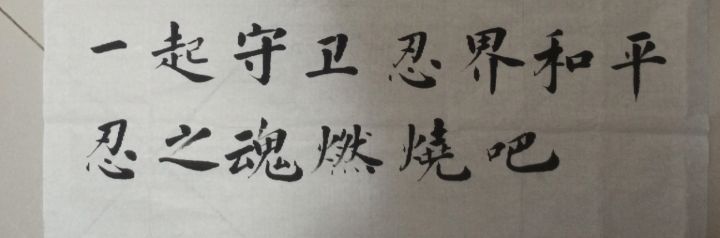 一起守卫忍界和平
忍之魂燃燒吧